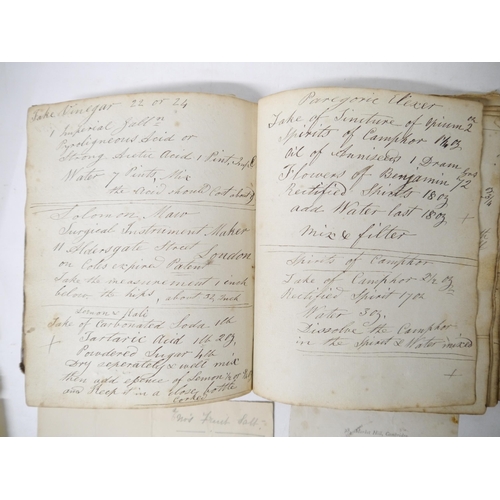 Take Vinegar 22 or 24
1 Imperial Galln
Pyroligneous Acid or
Strong Acetic Acid 1 Pint
Water 7 Pints Mix
the Acid should Cost about
Solomon Maw
Surgical Instrument Maker
11 Aldersgate Street London
on Coles expired Patent
Take the measurement 1 inch
below the hips, about 32 inch
Lemon & Kali
Take of Carbonated Soda 1 lb
+ Tartaric Acid 1 lb 2 oz
Powdered Sugar 4 lb
Dry seperately & well mix
then add essence of Lemon
and Keep it in a close bottle
corked
Paregoric Elixer
Take of Tincture of Opium 2 oz
Spirits of Camphor 1½ oz
Oil of Anniseed 1 Dram
Flowers of Benjamin 72 grs
Rectified Spirits 18 oz
add Water last 18 oz
+
Mix & filter
Spirits of Camphor
Take of Camphor 2½ oz
Rectified Spirit 17 oz
Water 3 oz
Dissolve the Camphor
in the Spirit & Water mixed
+